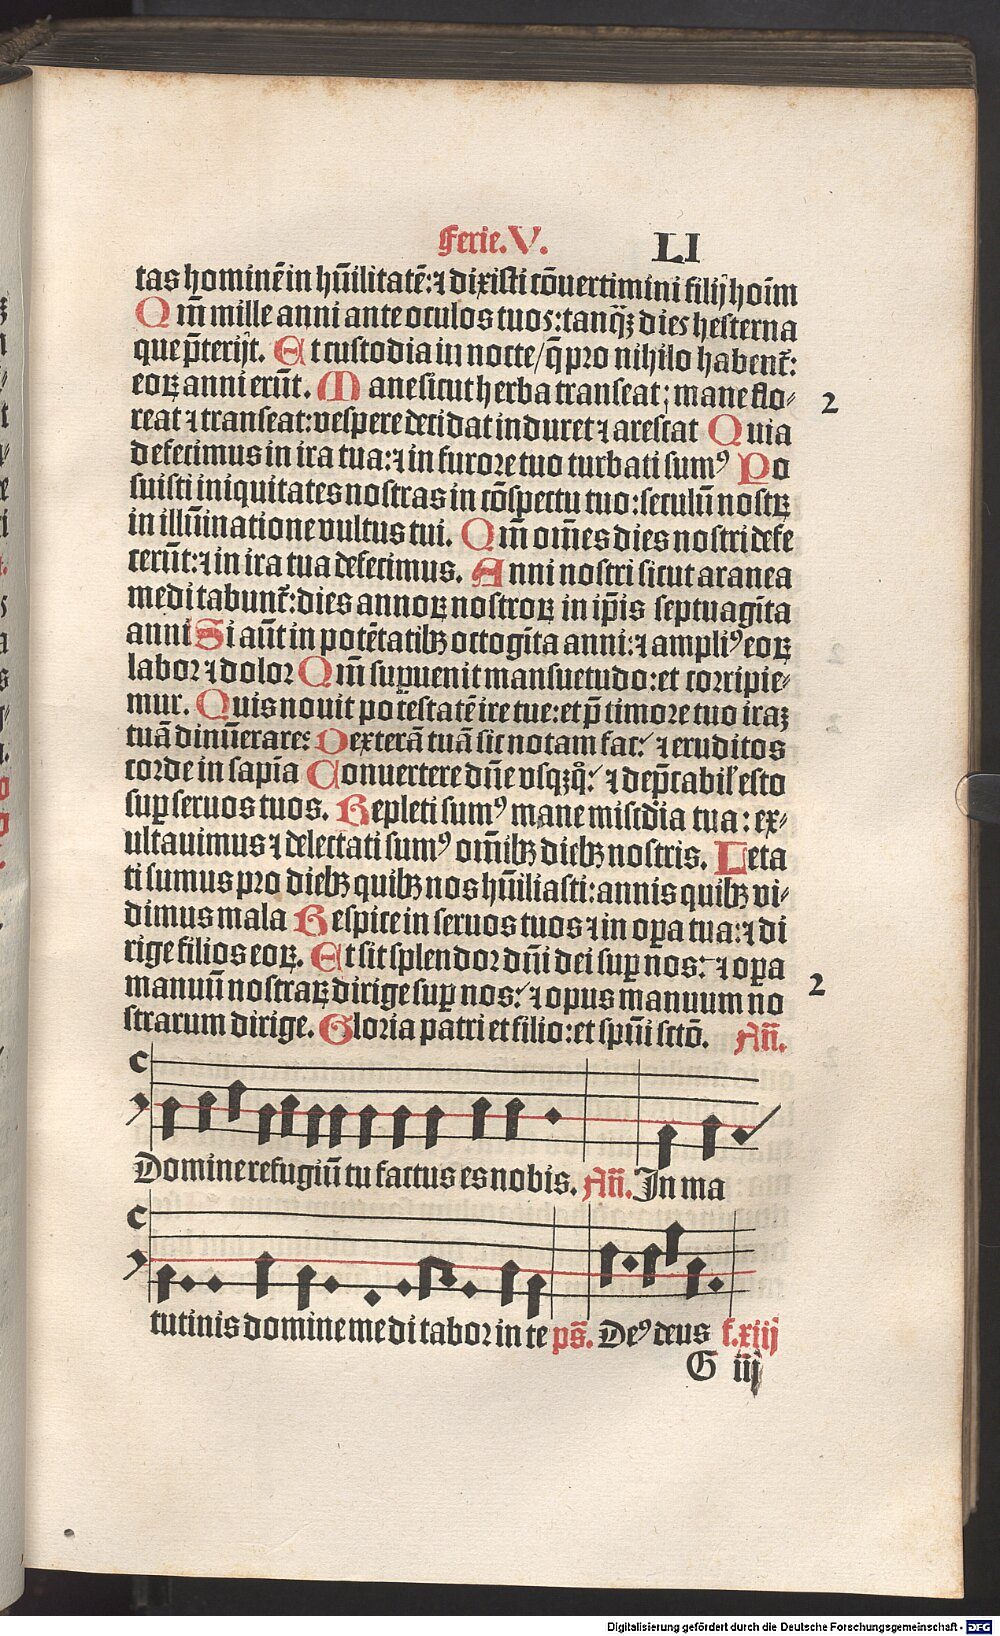 Ferie. V. LI
tas hominē in hūilitatē: ⁊ dixisti cōuertimini filij hoīm
Qm̄ mille anni ante oculos tuos: tanq̄ꝫ dies hesterna
que p̄terijt. Et custodia in nocte / q̄ pro nihilo habent̄:
eoꝝ anni erūt. Mane sicut herba transeat; mane flo⸗ 2
reat ⁊ transeat: vespere decidat induret ⁊ arescat Quia
defecimus in ira tua: ⁊ in furore tuo turbati sumꝰ Po
suisti iniquitates nostras in cōspectu tuo: seculū nostꝝ
in illūinatione vultus tui. Qm̄ om̄es dies nostri defe
cerūt: ⁊ in ira tua defecimus. Anni nostri sicut aranea
meditabunt̄: dies annoꝝ nostroꝝ in ip̄is septuagīta
anni Si aūt in potētatibꝫ octogīta anni: ⁊ ampliꝰ eoꝝ
labor ⁊ dolor Qm̄ suꝑuenit mansuetudo: et corripie⸗
mur. Quis nouit potestatē ire tue: et p̄ timore tuo iraꝫ
tuā dinūerare: Dexterā tuā sic notam fac: ⁊ eruditos
corde in sapīa Conuertere dn̄e vsqꝫq̊: ⁊ dep̄cabił esto
suꝑ seruos tuos. Repleti sumꝰ mane miscd̄ia tua: ex⸗
ultauimus ⁊ delectati sumꝰ om̄ibꝫ diebꝫ nostris. Leta
ti sumus pro diebꝫ quibꝫ nos hūiliasti: annis quibꝫ vi⸗
dimus mala Respice in seruos tuos ⁊ in oꝑa tua: ⁊ di
rige filios eoꝝ. Et sit splendor dn̄i dei suꝑ nos: ⁊ oꝑa
manuū nostraꝝ dirige suꝑ nos: ⁊ opus manuum no 2
strarum dirige. Gloria patri et filio: et spūi sctō. An̄.
Domine refugiū tu factus es nobis. An̄. In ma
tutinis domine meditabor in te ps̄. Deꝰ deus f. xiij
G iij
Digitalisierung gefördert durch die Deutsche Forschungsgemeinschaft - DFG